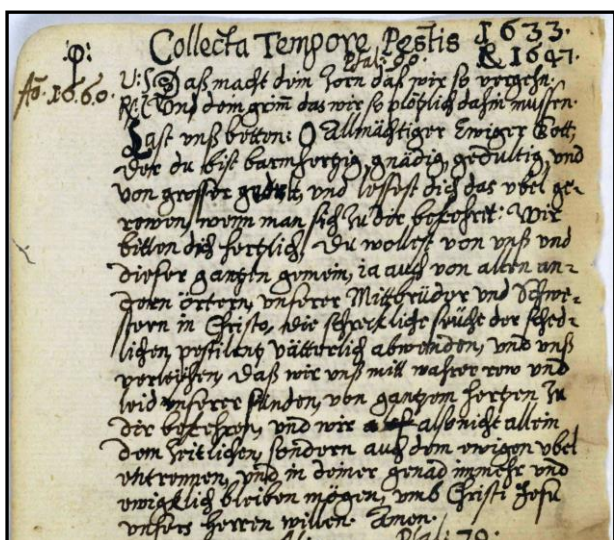 Collecta Tempore Pestis 1633.
Psal: 90. & 1647.
Ao. 1660.
V: Daß macht dein Zorn daß wir so vergehn.
R: Und dein grim̄ das wir so plötzlich dahin mussen.
Last unß betten: O Allmächtiger Ewiger Gott,
der du bist barmhertzig, gnädig, gedultig, und
von grosser gedult, und lessest dich das ubel ge-
rewen, wenn man sich zu dir bekehret: Wir
bitten dich hertzlich, du wollest von unß und
dieser gantzen gemein, ia auch von allen an-
dern örtern, unserer Mittbrüder und Schwe-
stern in Christo, die schreckliche seüche der sched-
lichen pestilentz vätterlich abwenden, und unß
verleihen, daß wir unß mitt wahrer rew und
leid unserer sünden, von gantzem hertzen zu
dir bekehren, und wir also nicht allein
dem zeitlichen, sondern auch dem ewigen ubel
entrinnen, und in deiner genad immehr und
ewigklich bleiben mögen, umb Christi Jesu
unsers herren willen. Amen.
Psal: 79.